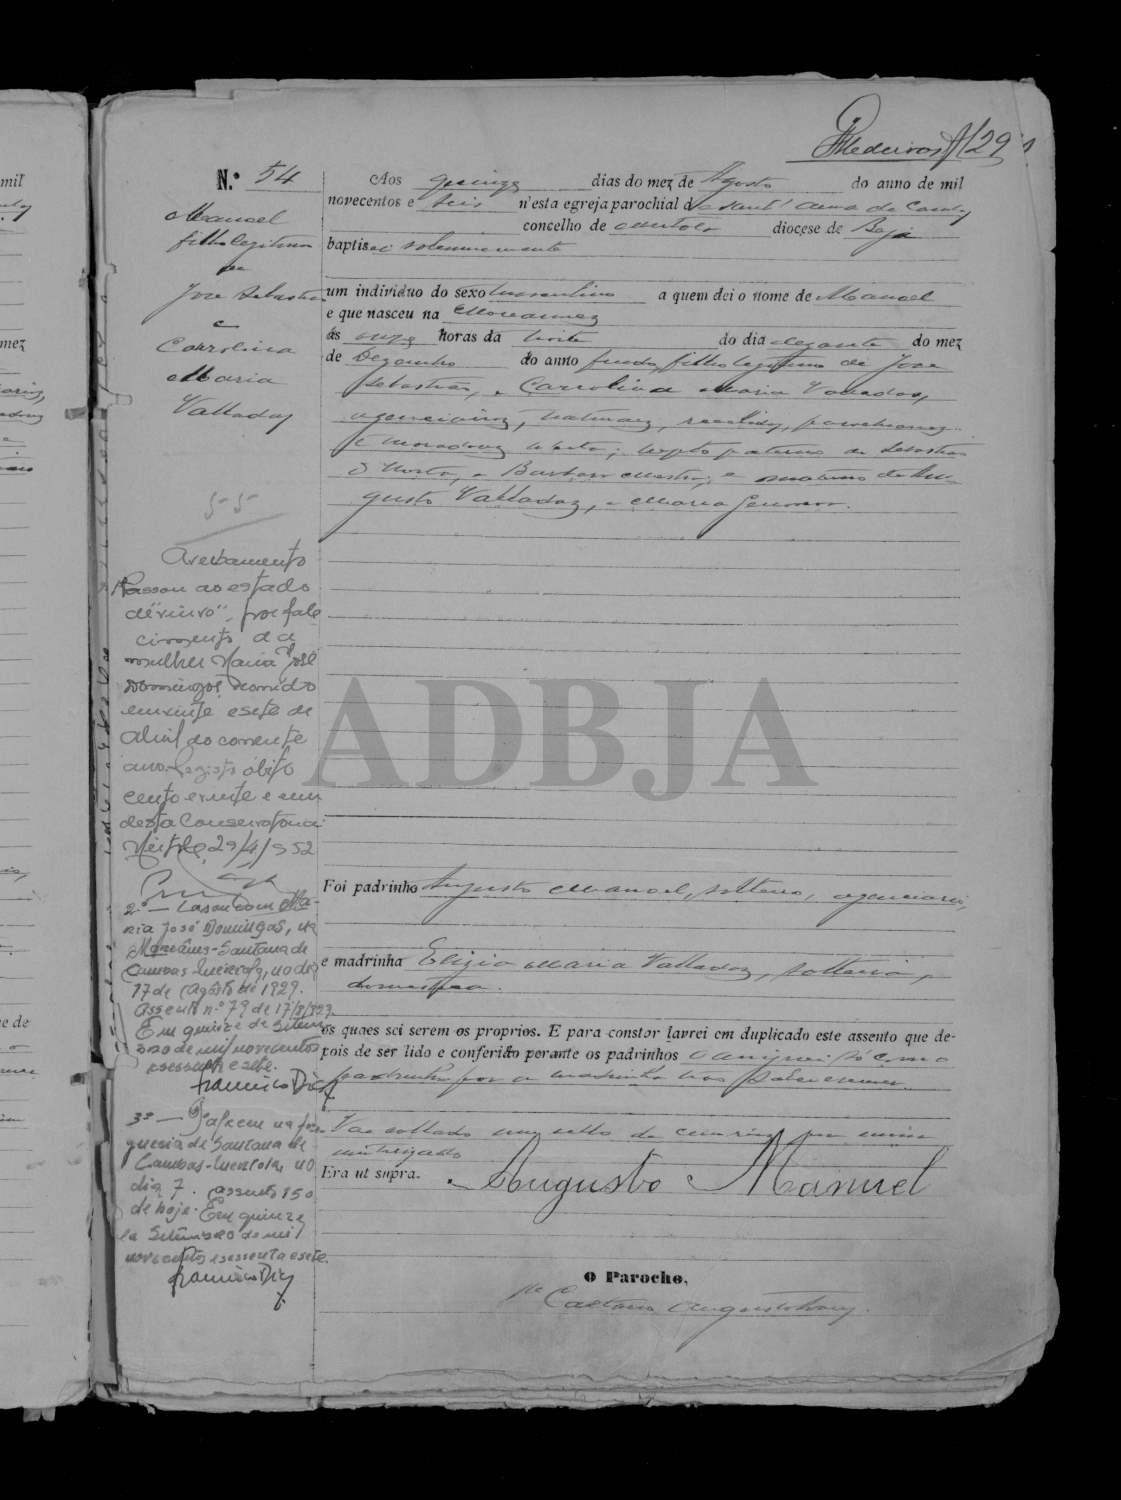 Medeiros 29
N.º 54
Manoel
filho legitimo
de
Jose Sebastião
e
Carrolina
Maria
Valladas
55
Aos quinze dias do mez de Agosto do anno de mil
novecentos e seis n'esta egreja parochial de Sant'Anna de Cambas
concelho de Mertola diocese de Beja
baptisei solemnemente
um individuo do sexo masculino a quem dei o nome de Manoel
e que nasceu na
ás onze horas da noite do dia do mez
de Dezembro do anno findo, filho legitimo de Jose
Sebastião, e Carrolina Maria Valladas,
naturaes, recebidos, parochianos
e moradores n'esta; neto paterno de Sebastião
e Barbara Mestre, e materno de Au-
gusto Valladas, e Maria
Averbamento
Passou ao estado
de "viuvo", por fale
cimento de a
mulher Maria José
Domingos, ocorrido
em vinte e sete de
abril do corrente
ano. Registo óbito
cento e vinte e um
desta Conservatoria
Mértola, 29/4/952
2º — Casou com Ma-
ria José Domingos, na
Santana de
Cambas-Mertola, no dia
17 de Agosto de 1929.
Assento nº 79 de 17/8/929
Em quinze de Setem-
bro de mil novecentos
sessenta e sete.
Francisco Diaz
3º — Faleceu na fre-
guesia de Santana de
Cambas-Mertola, no
dia 7. Assento 150
de hoje. Em quinze
de Setembro de mil
novecentos e sessenta e sete.
Francisco Diaz
ADBJA
Foi padrinho Augusto Manoel, solteiro,
e madrinha Maria Valladas, solteira,
domestica.
os quaes sei serem os proprios. E para constar lavrei em duplicado este assento que de-
pois de ser lido e conferido perante os padrinhos o assignei só com o
padrinho por a madrinha não saber escrever.
Vae collado um sello de cem reis por mim
inutilizado
Era ut supra. Augusto Manuel
O Parocho,
Caetano Augusto